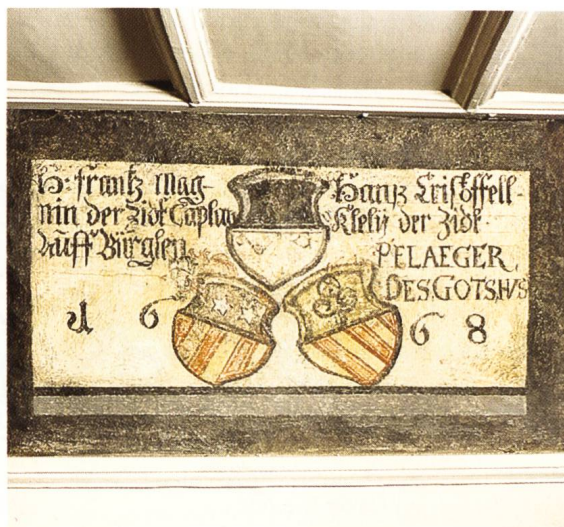 H. frantz Mag-
nin der Zidt Caplan
Auff Bürglen
Hanß Cristoffell-
Klely der Zidt
PELAEGER
DES.GOTSH/S
1668